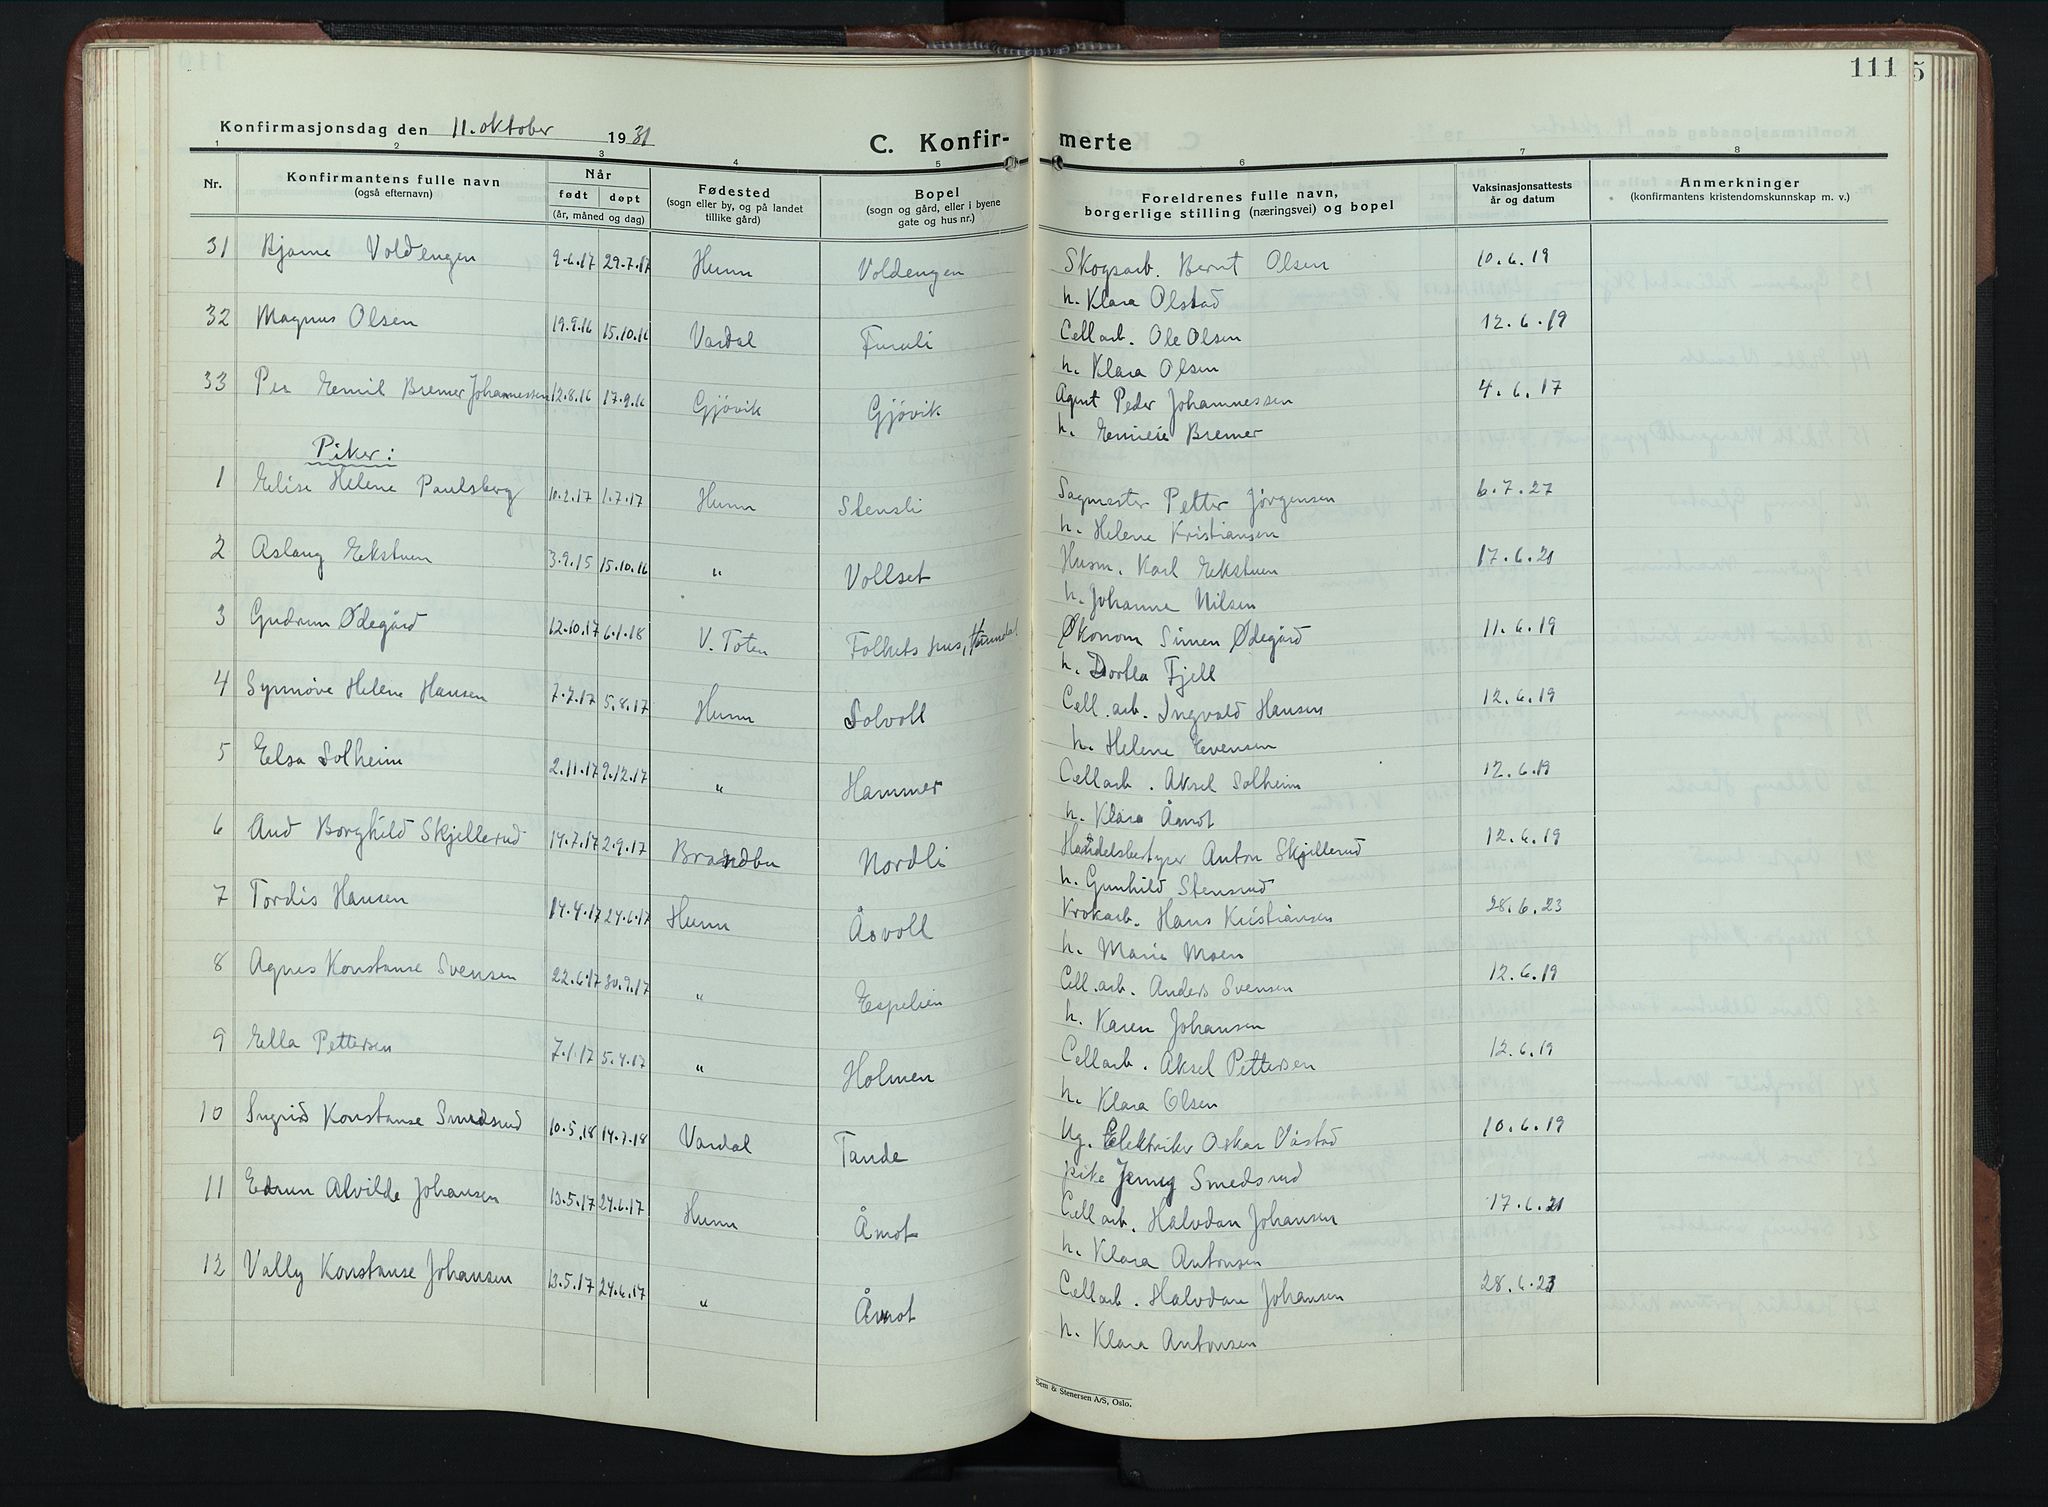 111 5
Konfirmasjonsdag den 11. oktober 1931
C. Konfir- merte
1 2 3 4 5 6 7 8
Nr.
Konfirmantens fulle navn
(også efternavn)
Når
født døpt
(år, måned og dag)
Fødested
(sogn eller by, og på landet
tillike gård)
Bopel
(sogn og gård, eller i byene
gate og hus nr.)
Foreldrenes fulle navn,
borgerlige stilling (næringsvei) og bopel
Vaksinasjonsattests
år og datum
Anmerkninger
(konfirmantens kristendomskunnskap m. v.)
31 Bjarne Voldengen 9.6.17 29.7.17 Hunn Voldengen Skogsarb. Bernt Olsen 10.6.19
h. Klara Olstad
32 Magnus Olsen 19.9.16 15.10.16 Vardal Furuli Cellarb. Ole Olsen 12.6.19
h. Klara Olsen
33 Per Emil Bremer Johannessen 12.8.16 17.9.16 Gjövik Gjövik Agent Peder Johannessen 4.6.17
h. Bremer
Piker:
1 Elise Helene Paulsberg 10.2.17 1.7.17 Hunn Stensli Sagmester Petter Jörgensen 6.7.27
h. Helene Kristiansen
2 Aslaug Ekstuen 3.9.15 15.10.16 " Vollset Husm. Karl Ekstuen 17.6.21
h. Johanne Nilsen
3 Gudrun Ødegård 12.10.17 6.1.18 V. Toten Folkets hus, Hunndal Økonom Simen Ødegård 11.6.19
h. Dorthea Fjell
4 Synnøve Helene Hansen 7.7.17 5.8.17 Hunn Solvoll Cell.arb. Ingvald Hansen 12.6.19
h. Helene Evensen
5 Elsa Solheim 2.11.17 9.12.17 " Hammer Cellarb. Aksel Solheim 12.6.19
h. Klara Åmot
6 Aud Borghild Skjellerud 14.7.17 2.9.17 Brandbu Nordli Handelsbestyrer Anton Skjellerud 12.6.19
h. Gunhild Stensrud
7 Tordis Hansen 14.4.17 24.6.17 Hunn Åsvoll Krokarb. Hans Kristiansen 28.6.23
h. Marie Moen
8 Agnes Konstanse Svensen 22.6.17 30.9.17 " Espelien Cell.arb. Anders Svensen 12.6.19
h. Karen Johansen
9 Ella Pettersen 7.1.17 5.4.17 " Holmen Cellarb. Aksel Pettersen 12.6.19
h. Klara Olsen
10 Ingrid Konstanse Smedsrud 10.5.18 14.7.18 Vardal Tande Ug. Elektriker Oskar Våstad 10.6.19
pike Jenny Smedsrud
11 Edrun Alvilde Johansen 13.5.17 24.6.17 Hunn Åmot Cellarb. Halvdan Johansen 17.6.21
h. Klara Antonsen
12 Vally Konstanse Johansen 13.5.17 24.6.17 " Åmot Cellarb. Halvdan Johansen 28.6.23
h. Klara Antonsen
Sem & Stenersen A/S, Oslo.